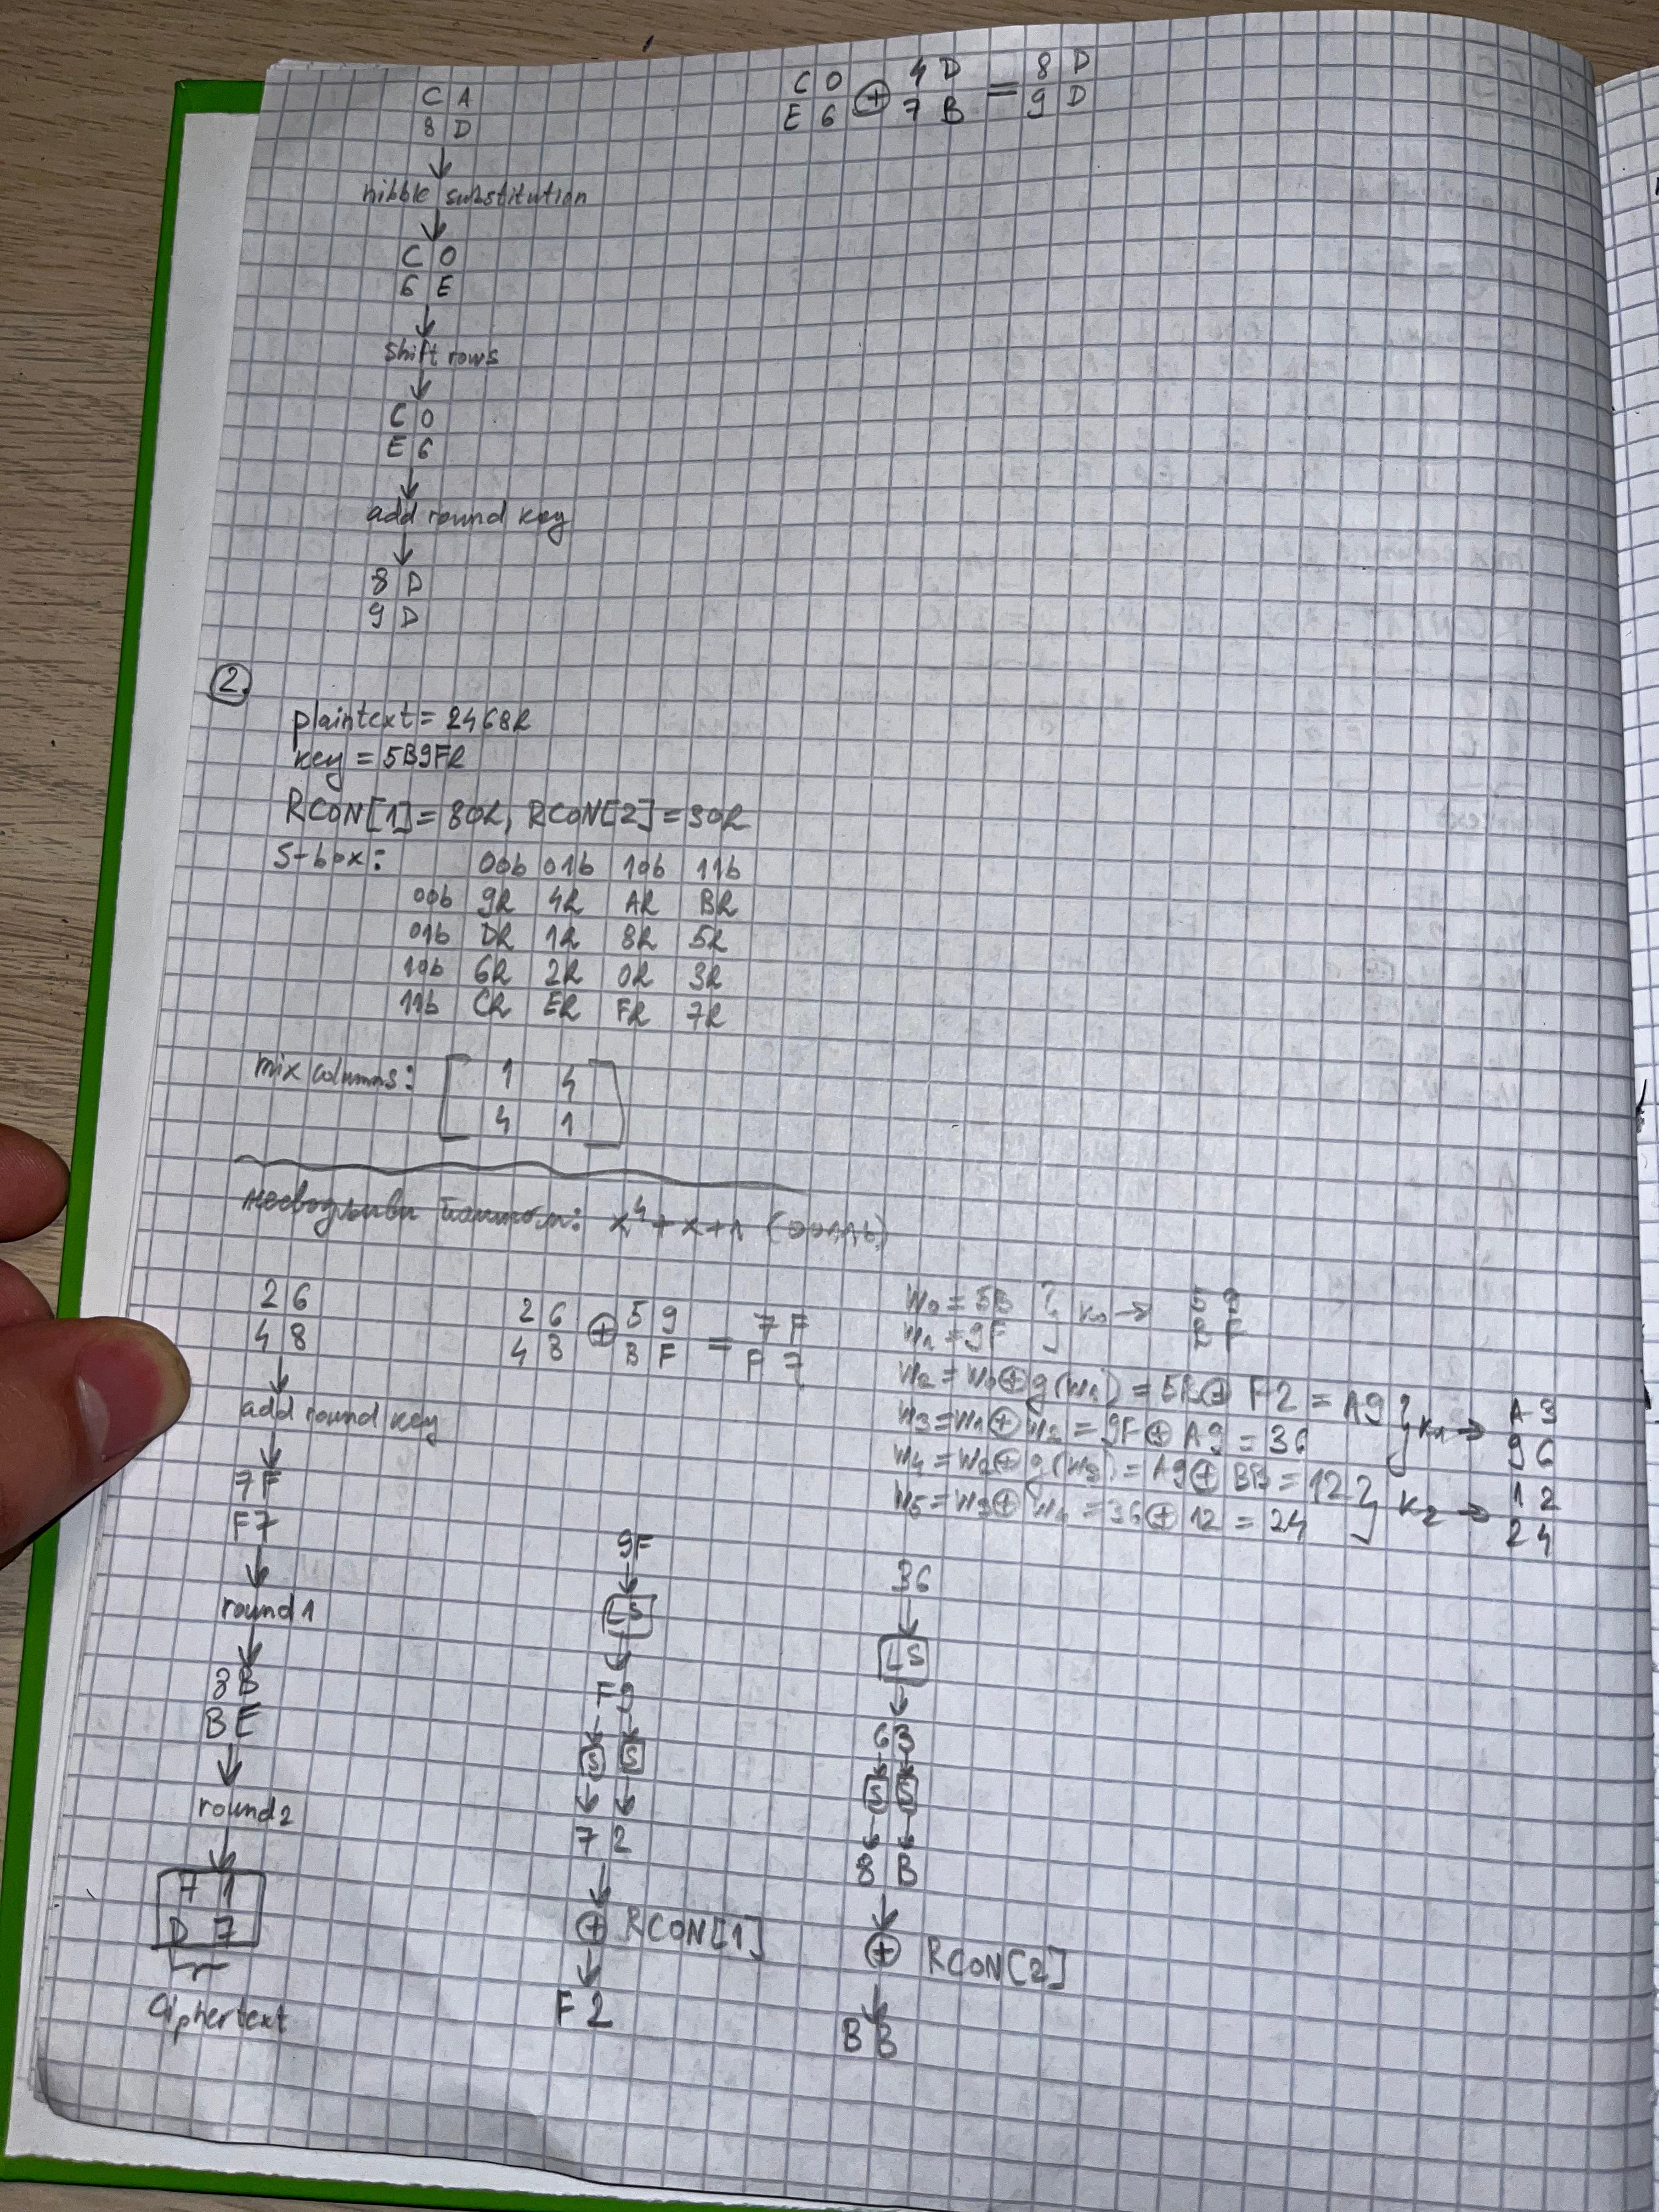 C A
8 D
↓
nibble substitution
↓
C 0
6 E
↓
Shift rows
↓
C 0
E 6
↓
add round key
↓
8 D
9 D
C 0 ⊕ 4 D = 8 D
E 6 7 B 9 D
2.
plaintext = 2468h
key = 5B9Fh
RCON[1] = 80h, RCON[2] = 30h
S-box: 00b 01b 10b 11b
00b 9h 4h Ah Bh
01b Dh 1h 8h 5h
10b 6h 2h 0h 3h
11b Ch Eh Fh 7h
mix columns: [ 1 4
4 1 ]
x⁴+x+1 (0011b)
2 6
4 8
↓
add round key
↓
7F
F7
↓
round1
↓
8B
BE
↓
round2
↓
A 1
D 7
Ciphertext
2 6 ⊕ 5 9 = 7 F
4 8 B F F 7
w0 = 5B } k0 → 5 9
w1 = 9F B F
w2 = w0⊕g(w1) = 5B⊕F2 = A9 } k1 → A 3
w3 = w1⊕w2 = 9F⊕A9 = 36 9 6
w4 = w2⊕g(w3) = A9⊕BB = 12 } k2 → 1 2
w5 = w3⊕w4 = 36⊕12 = 24 2 4
9F
↓
LS
↓
F9
↓ ↓
S S
↓ ↓
7 2
↓
⊕ RCON[1]
↓
F 2
36
↓
LS
↓
63
↓ ↓
S S
↓ ↓
8 B
↓
⊕ RCON[2]
↓
B B